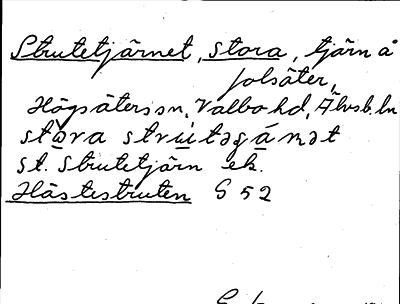 Strutetjärnet, stora, tjärn å
Jolsäter,
Högsäters sn, Valbo hd, Älvsb. ln
stòra strútəgánət
St. Strutetjärn ek.
Hästestruten G 52